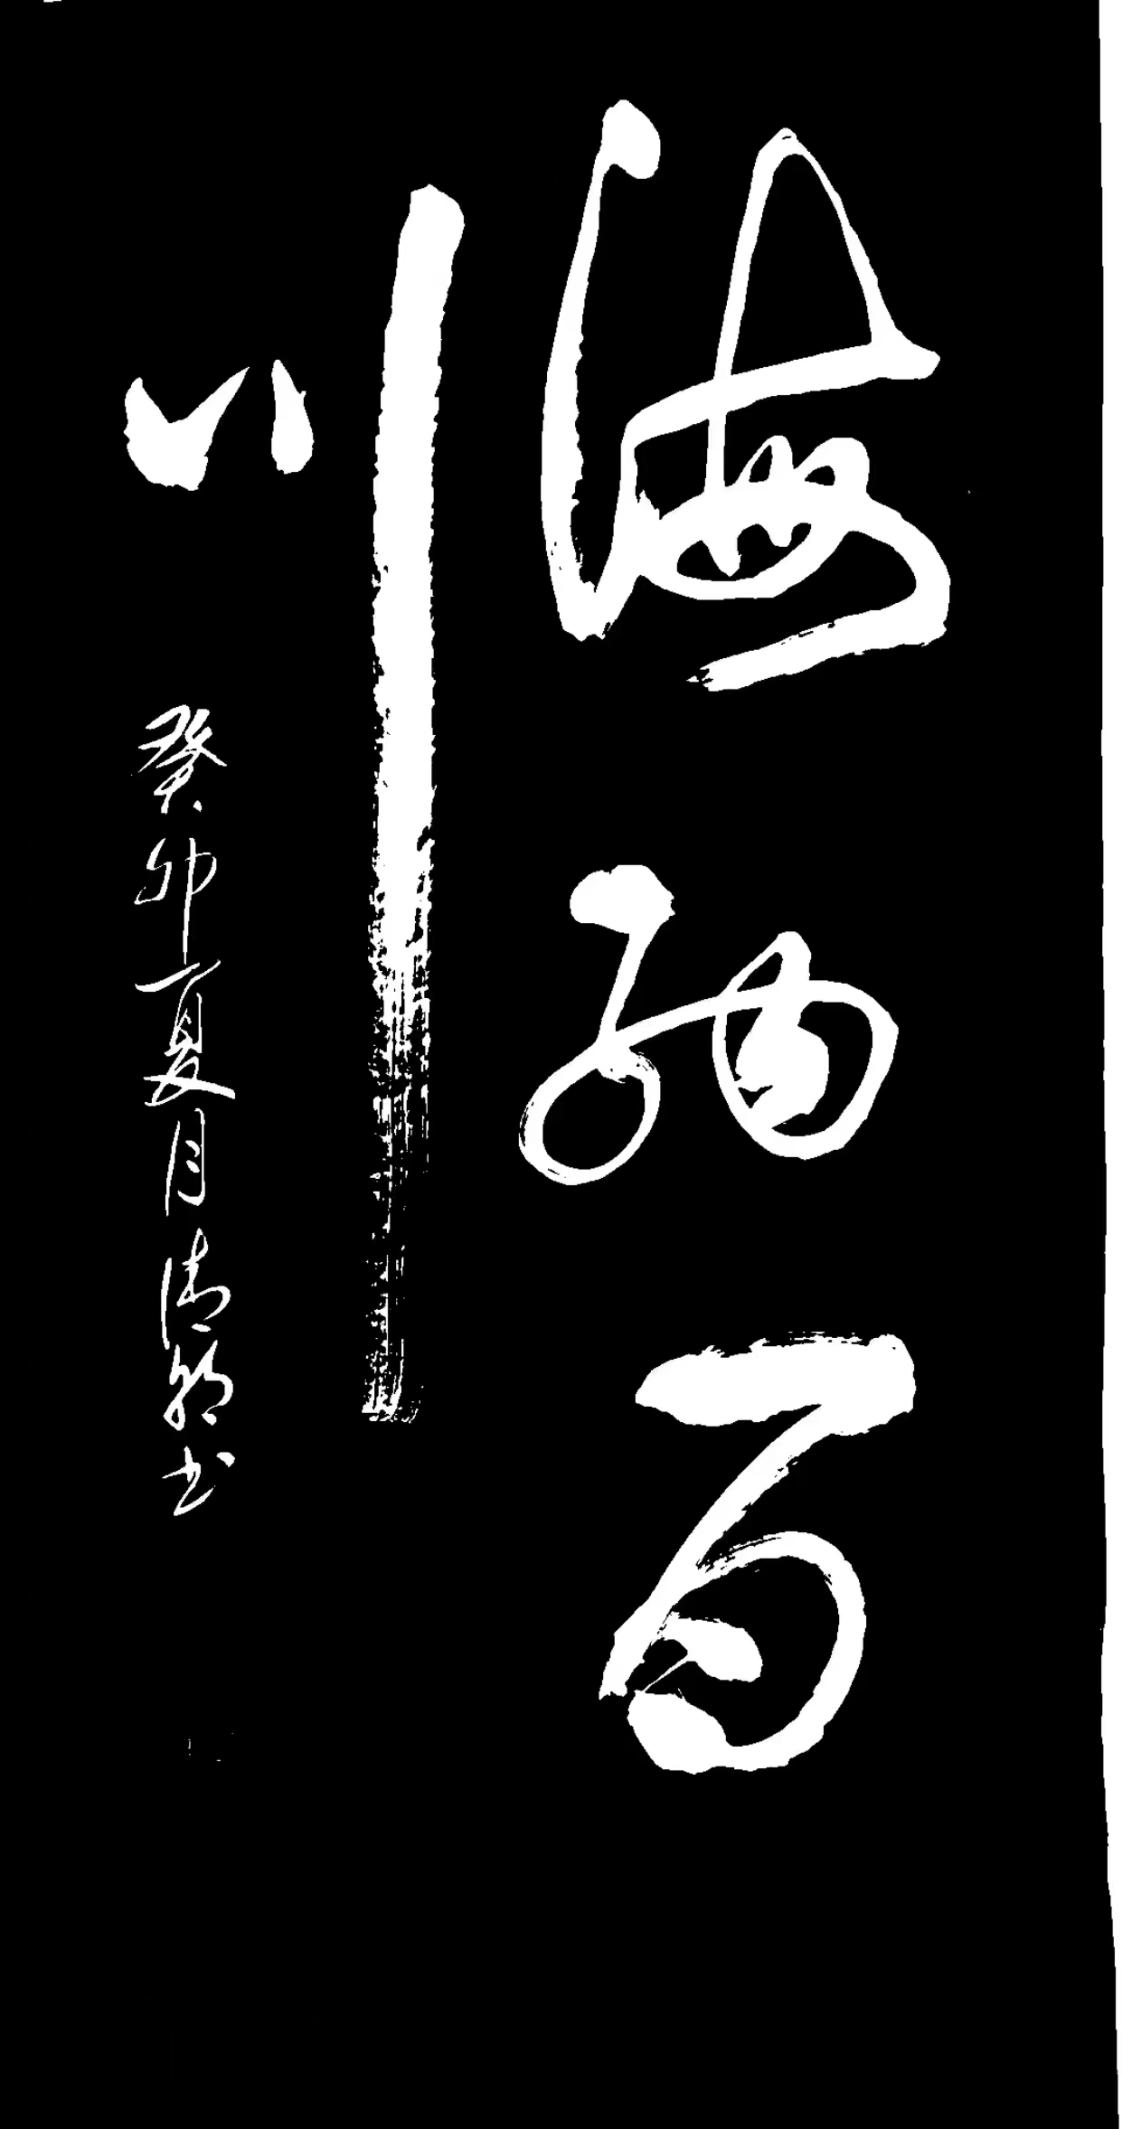 海纳百
川
癸卯夏月清
书